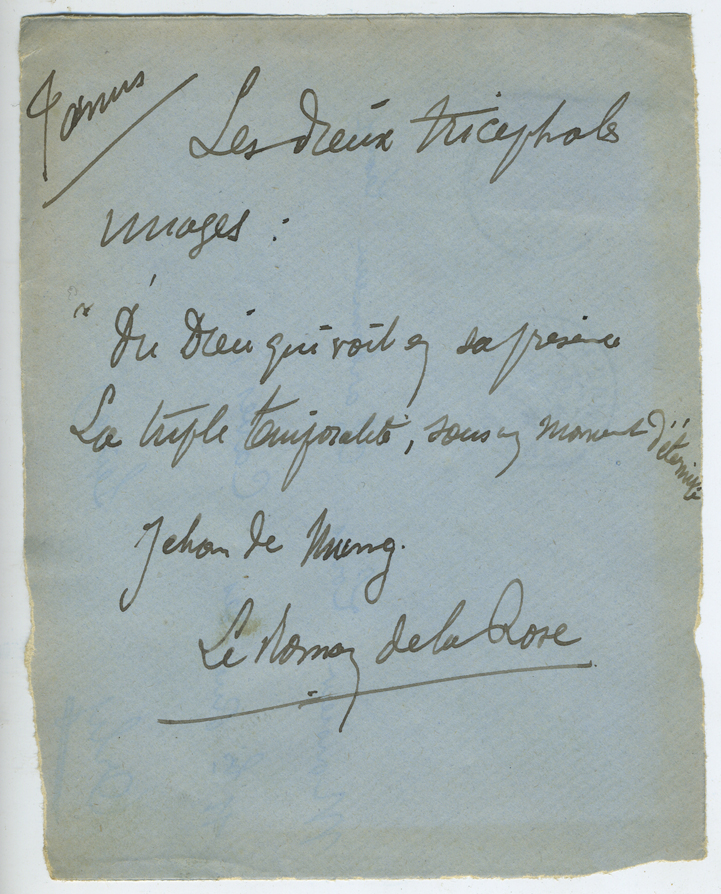 Janus
Les Dieux tricéphales
images :
" Du Dieu qui voit en sa présence
La triple temporalité, sous un moment d'éternité
Jehan de Mung.
Le Roman de la Rose